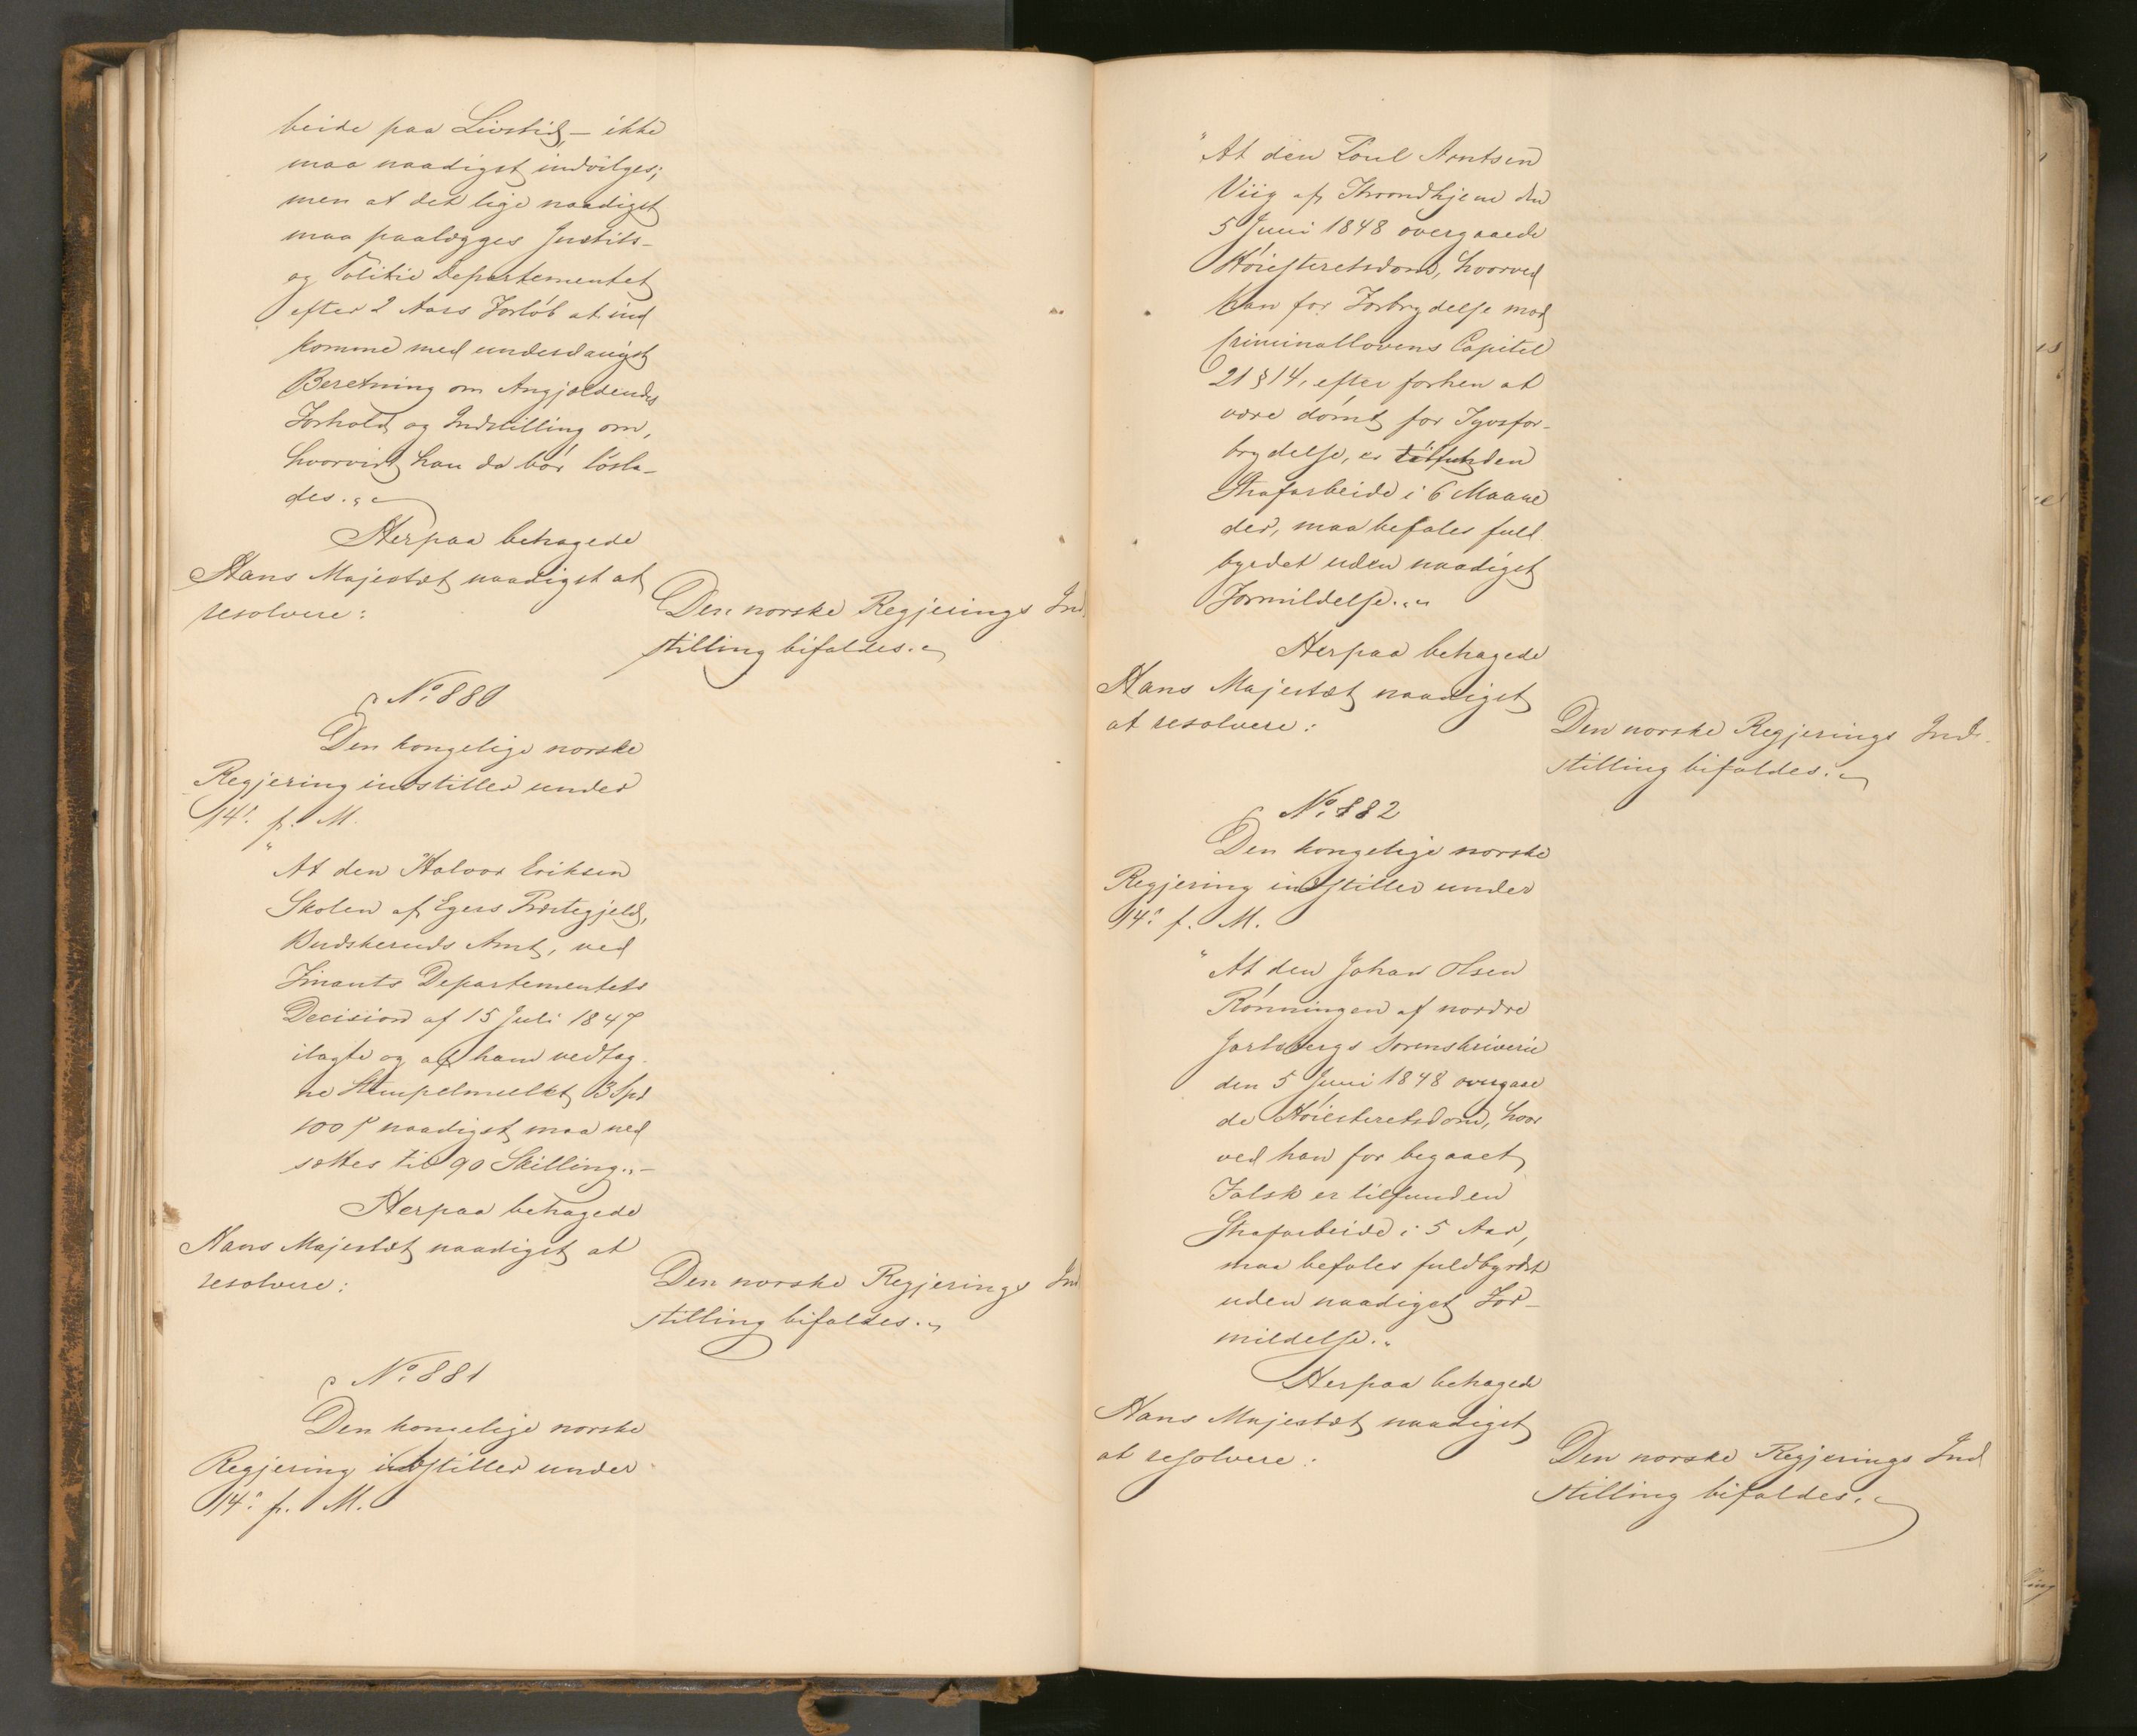 beide paa Livstid, – ikke
maa naadigst indvilges;
men at det lige naadigst
maa paalægges Justits-
og Politie Departementet
efter 2 Aars Forløb at ind
komme med underdanigst
Beretning om Angjældendes
Forhold og Indstilling om,
hvorvidt han da bør lösla-
des."
Herpaa behagede
Hans Majestæt naadigst at
resolvere:
Den norske Regjerings Ind
stilling bifaldes.
No. 880
Den kongelige norske
Regjering indstiller under
14. f. M.
"At den Halvor Eriksen
Skolen af Egers Præstegjeld,
Budskeruds Amt, ved
Finants Departementets
Decision af 15 Juli 1847
ilagte og af ham vedtag-
ne Stempelmulkt 3 Spd
100 f naadigst maa ned
sættes til 90 Skilling." –
Herpaa behagede
Hans Majestæt naadigst at
resolvere:
Den norske Regjerings Ind
stilling bifaldes.
No. 881
Den kongelige norske
Regjering indstiller under
14. f. M.
"At den Poul Arntsen
Viig af Throndhjem den
5 Juni 1848 overgaaede
Höiesteretsdom, hvorved
han for Forbrydelse mod
Criminallovens Capitel
21 § 14, efter forhen at
være dömt for Tyvsfor-
brydelse, er tilfunden
Strafarbeide i 6 Maane
der, maa befales fuld
byrdet uden naadigst
Formildelse."
Herpaa behagede
Hans Majestæt naadigst
at resolvere:
Den norske Regjerings Ind-
stilling bifaldes.
No. 882
Den kongelige norske
Regjering indstiller under
14. f. M.
"At den Johan Olsen
Rönningen af nordre
Jarlsbergs Sorenskriverie
den 5 Juni 1848 overgaae
de Höiesteretsdom, hvor
ved han for begaaet
Falsk er tilfunden
Strafarbeide i 5 Aar,
maa befales fuldbyrdet
uden naadigst For-
mildelse."
Herpaa behagede
Hans Majestæt naadigst
at resolvere:
Den norske Regjerings Ind
stilling bifaldes.